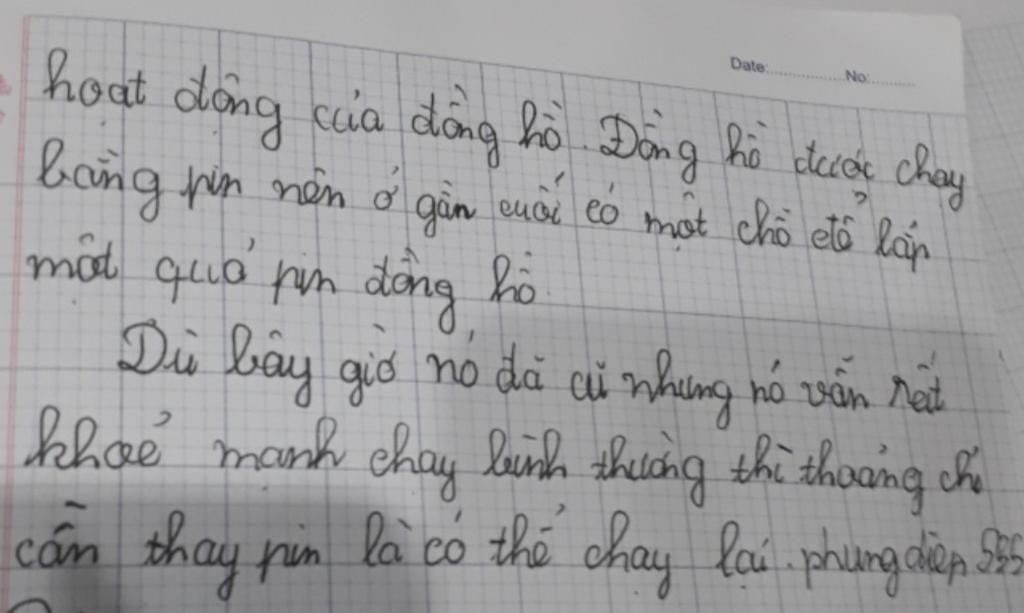 Date: No:
hoạt động của đồng hồ. Đồng hồ được chạy
bằng pin nên ở gần cuối có một chỗ để lắp
một quả pin đồng hồ.
Dù bây giờ nó đã cũ nhưng nó vẫn rất
khoẻ mạnh chạy bình thường thi thoảng chỉ
cần thay pin là có thể chạy lại. phung diệp 555